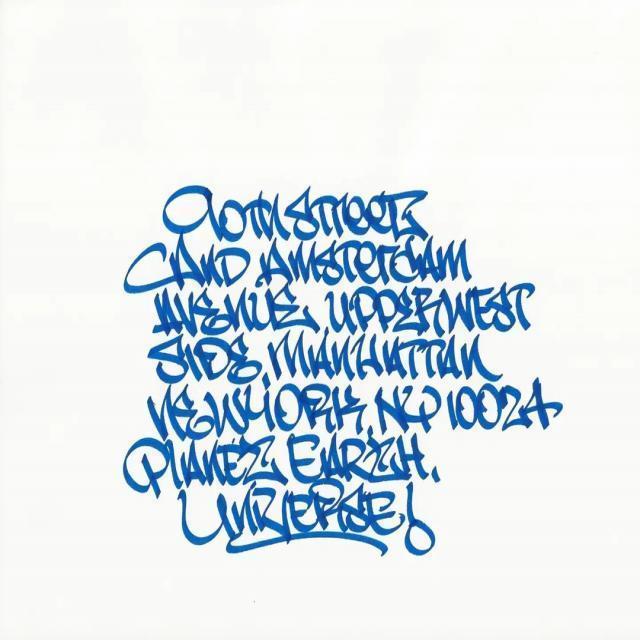 90TH STREET
AND AMSTERDAM
AVENUE, UPPER WEST
SIDE MANHATTAN
NEW YORK, NY 10024
PLANET EARTH,
UNIVERSE!